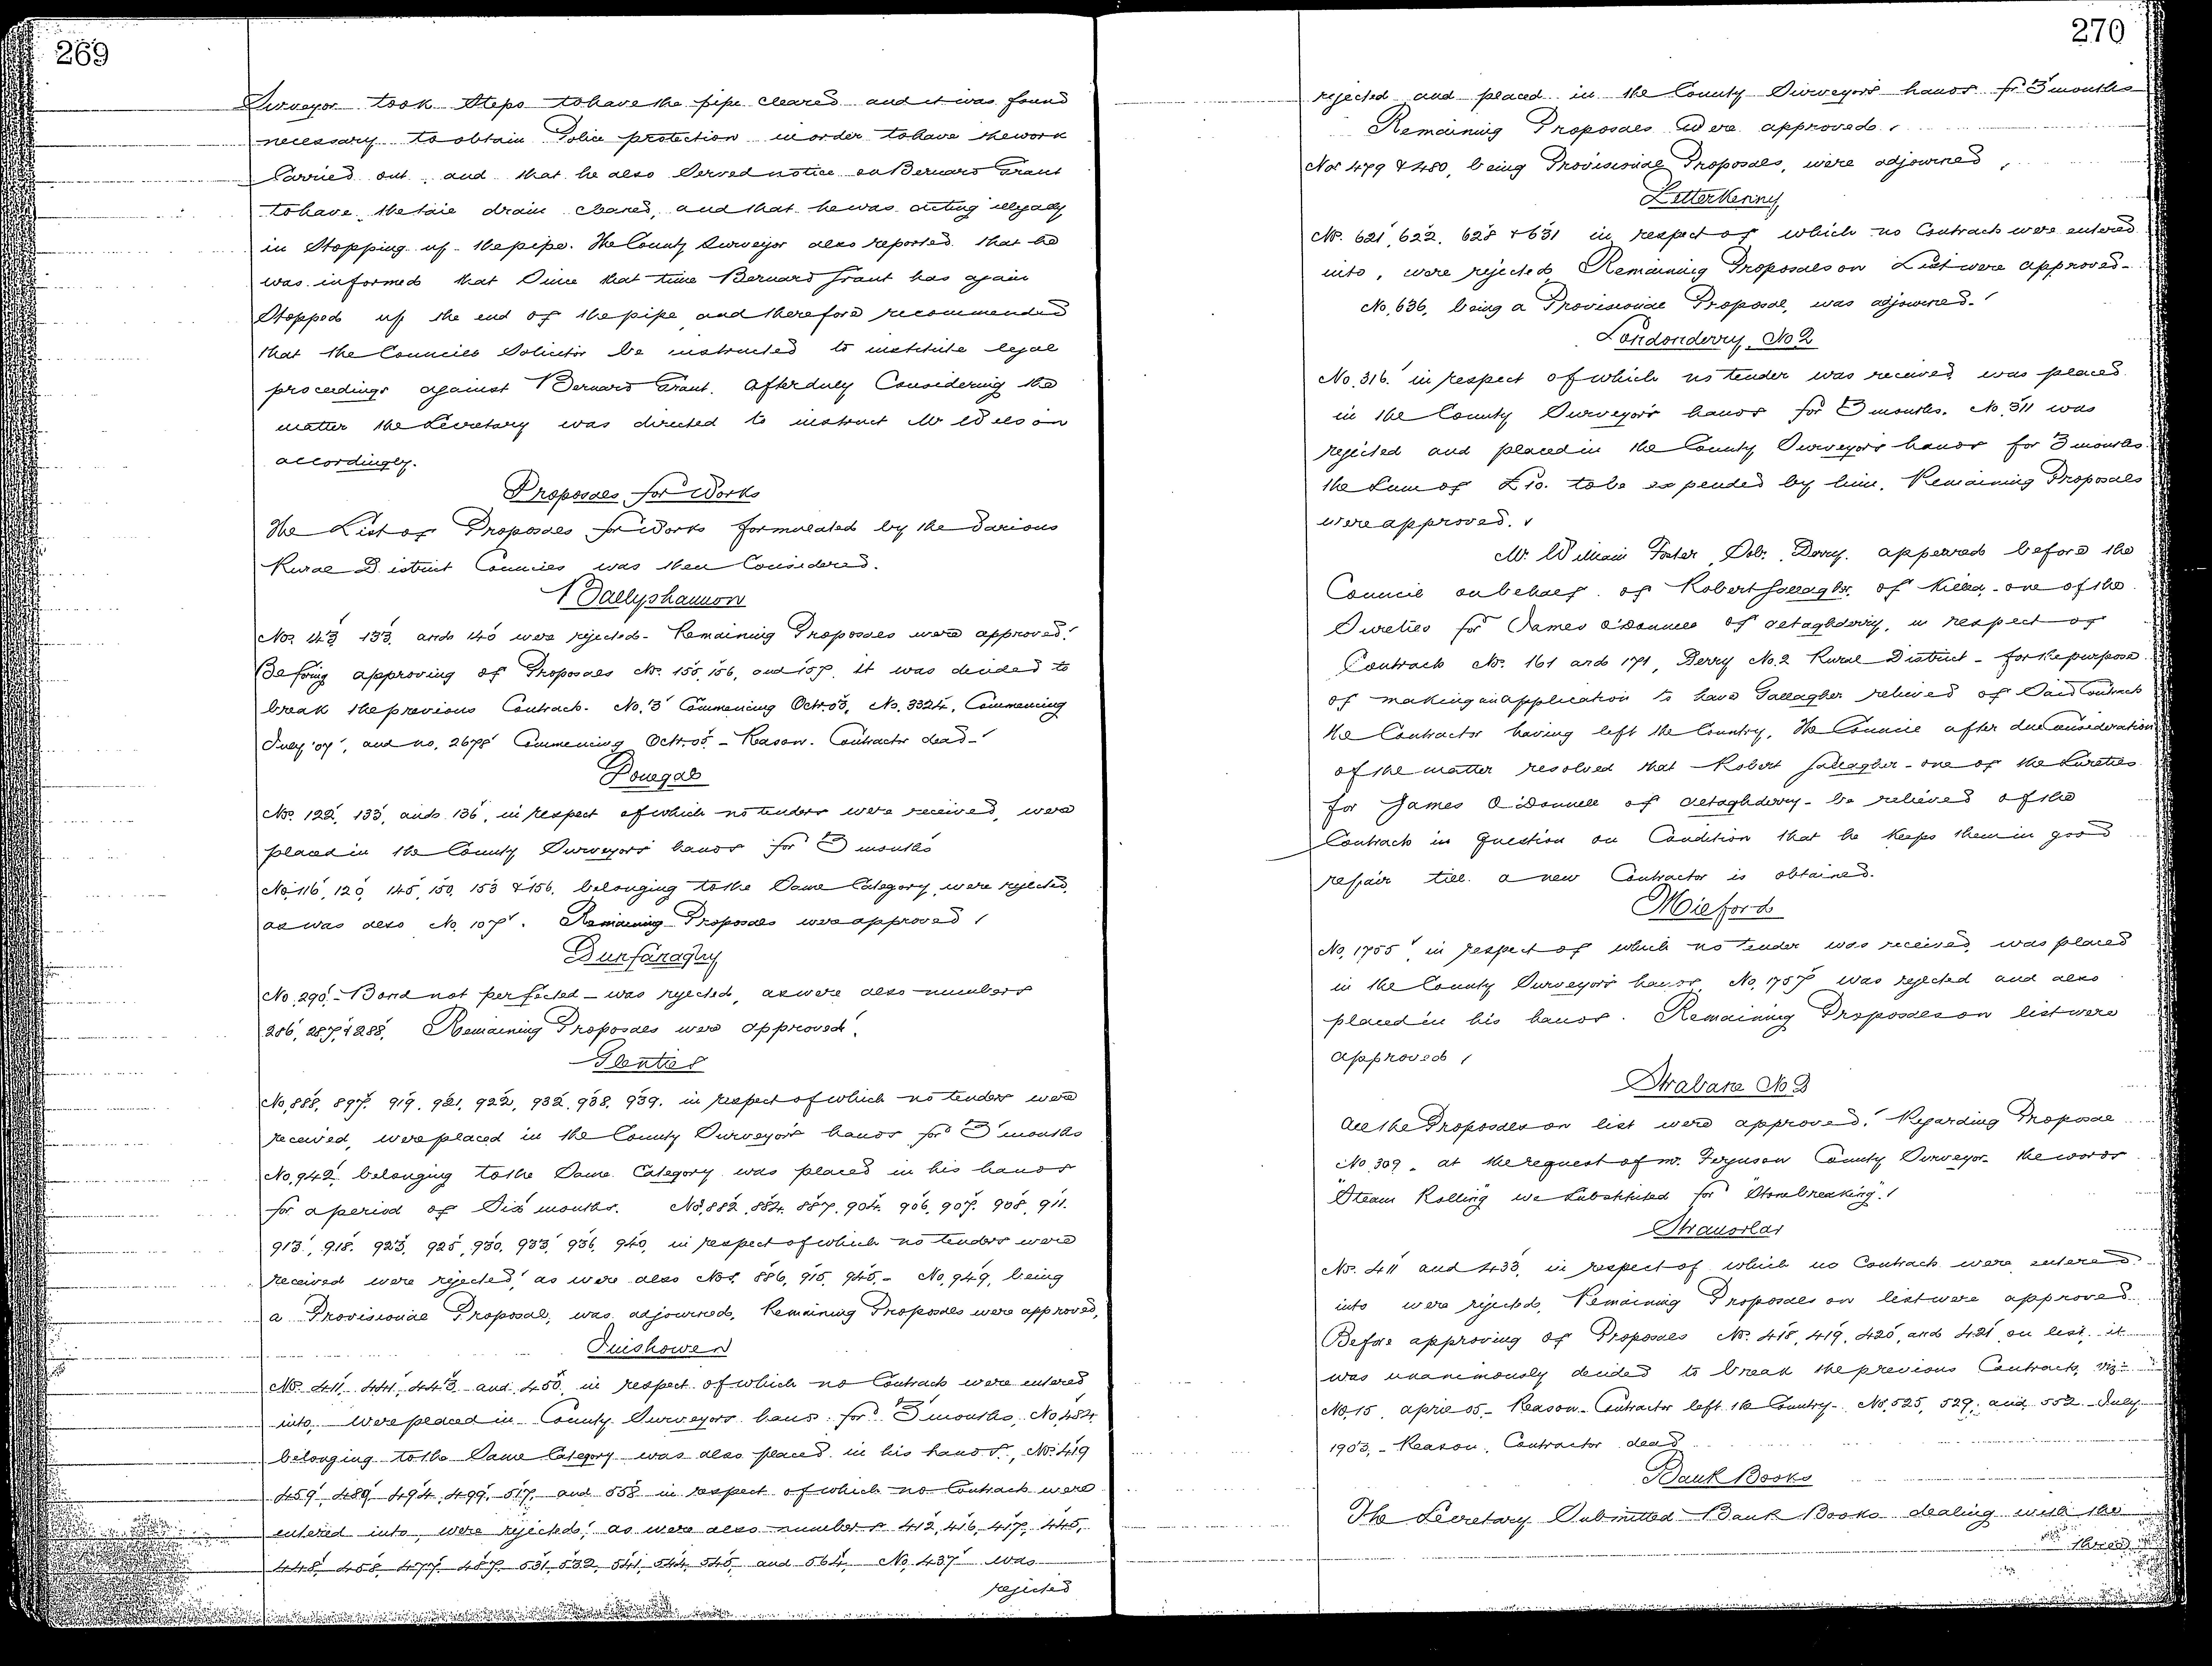 269
Surveyor took steps to have the pipe cleared and it was found
necessary to obtain Police protection in order to have the work
Carried out, and that he also Served notice on Bernard Grant
to have the tail drain cleared, and that he was acting illegally
in Stopping up the pipe. The County Surveyor also reported that he
was informed that Since that time Bernard Grant has again
Stopped up the end of the pipe and therefore recommended
that the Councils Solicitor be instructed to institute legal
proceedings against Bernard Grant. After duly Considering the
matter the Secretary was directed to instruct Mr Wilson
accordingly.
Proposals for Works
The List of Proposals for Works formulated by the Various
Rural District Councils was then Considered.
Ballyshannon
Nos. 143 133 and 140 were rejected - Remaining Proposals were approved.
Before approving of Proposals Nos. 155, 156, and 157, it was decided to
break the previous Contracts. No. 3 Commencing Octr. 03, No. 3324, Commencing
July '07, and no. 2678 Commencing Octr. 05 - Reason. Contractor dead -
Donegal
Nos. 122, 133, and 136, in respect of which no tenders were received, were
placed in the County Surveyors hands for 3 months
No. 116, 120, 145, 150, 153 & 156, belonging to the Same Category, were rejected,
as was also No. 107. Remaining Proposals were approved
Dunfanaghy
No. 290 - Bond not perfected - was rejected, as were also numbers
286, 287, & 288. Remaining Proposals were approved.
Glenties
No. 888, 897, 919, 921, 922, 932, 938, 939, in respect of which no tenders were
received, were placed in the County Surveyor's hands for 3 months
No. 942, belonging to the Same Category was placed in his hands
for a period of Six months. Nos. 882, 884, 887, 904, 906, 907, 908, 911,
913, 918, 923, 925, 930, 933, 936, 940, in respect of which no tenders were
received were rejected, as were also Nos. 886, 915, 945. - No. 949, being
a Provisional Proposal, was adjourned. Remaining Proposals were approved,
Inishowen
Nos. 411, 441, 443 and 450, in respect of which no Contracts were entered
into, were placed in County Surveyors hands for 3 months, No. 484
belonging to the Same Category was also placed in his hands, Nos. 419
459, 489, 494, 499, 517, and 558 in respect of which no Contracts were
entered into, were rejected, as were also numbers 412, 416, 417, 445,
448, 458, 477, 487, 531, 532, 541, 544, 545, and 564. No. 437 was
rejected
270
rejected and placed in the County Surveyor's hands for 3 months
Remaining Proposals Were approved.
Nos 479 & 480, being Provisional Proposals, were adjourned.
Letterkenny
Nos. 621, 622, 628 & 631 in respect of which no Contracts were entered
into, were rejected. Remaining Proposals on List were approved -
No. 636, being a Provisional Proposal, was adjourned.
Londonderry, No 2
No. 316 in respect of which no tender was received, was placed
in the County Surveyor's hands for 3 months. No. 311 was
rejected and placed in the County Surveyor's hands for 3 months
the Sum of £10. to be expended by him. Remaining Proposals
were approved.
Mr William Foster Solr. Derry. appeared before the
Council on behalf of Robert Gallagher, of Killea, - one of the
Sureties for James O'Donnell of Altaghderry, in respect of
Contracts Nos. 161 and 171, Derry No. 2 Rural District - for the purpose
of making an application to have Gallagher relieved of Said Contracts
the Contractor having left the Country. The Council after due Consideration
of the matter resolved that Robert Gallagher - one of the Sureties
for James O'Donnell of Altaghderry - be relieved of the
Contracts in question on Condition that he keeps them in good
repair till a new Contractor is obtained.
Milford
No. 1755, in respect of which no tender was received, was placed
in the County Surveyor's hands. No. 1757 was rejected and also
placed in his hands. Remaining Proposals on list were
approved
Strabane No 2
All the Proposals on list were approved. Regarding Proposal
No. 309, at the request of Mr. Ferguson County Surveyor - the words
"Steam Rolling" were Substituted for "Stonebreaking".
Stranorlar
Nos. 411 and 433, in respect of which no Contracts were entered
into were rejected. Remaining Proposals on list were approved
Before approving of Proposals Nos. 418, 419, 420, and 421 on list, it
was unanimously decided to break the previous Contracts, viz:-
No. 15, April 05. - Reason - Contractor left the Country - Nos. 525, 529, and 552 July
1903, - Reason, Contractor dead
Bank Books
The Secretary Submitted Bank Books dealing with the
three